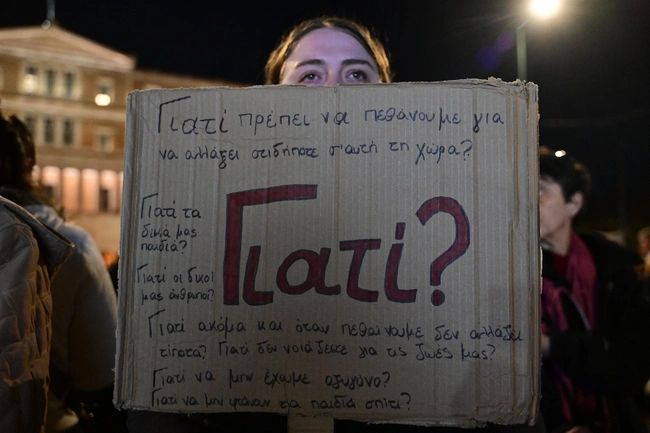 Γιατί πρέπει να πεθάνουμε για
να αλλάξει οτιδήποτε σ'αυτή τη χώρα?
Γιατί τα
δικά μας
παιδιά?
Γιατί οι δικοί
μας άνθρωποι?
Γιατί?
Γιατί ακόμα και όταν πεθαίνουμε δεν αλλάζει
τίποτα? Γιατί δεν νοιάζεστε για τις ζωές μας?
Γιατί να μην έχουμε οξυγόνο?
Γιατί να μην φτάσουν τα παιδιά σπίτι?